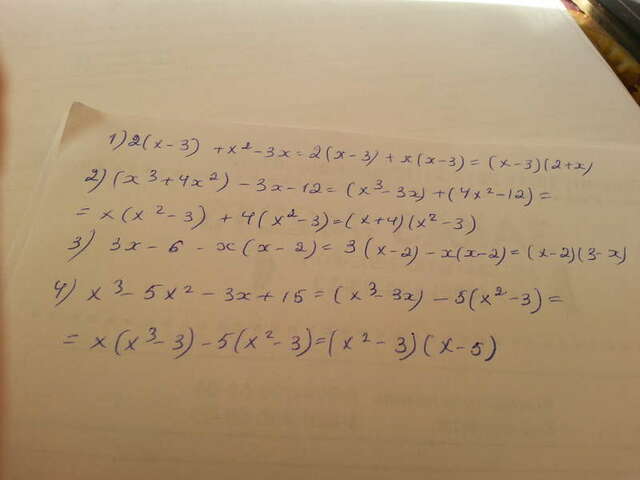 1) 2(x-3) + x² - 3x = 2(x-3) + x(x-3) = (x-3)(2+x)
2) (x³+4x²) - 3x - 12 = (x³-3x) + (4x²-12) =
= x(x²-3) + 4(x²-3) = (x+4)(x²-3)
3) 3x - 6 - x(x-2) = 3(x-2) - x(x-2) = (x-2)(3-x)
4) x³ - 5x² - 3x + 15 = (x³-3x) - 5(x²-3) =
= x(x³-3) - 5(x²-3) = (x²-3)(x-5)